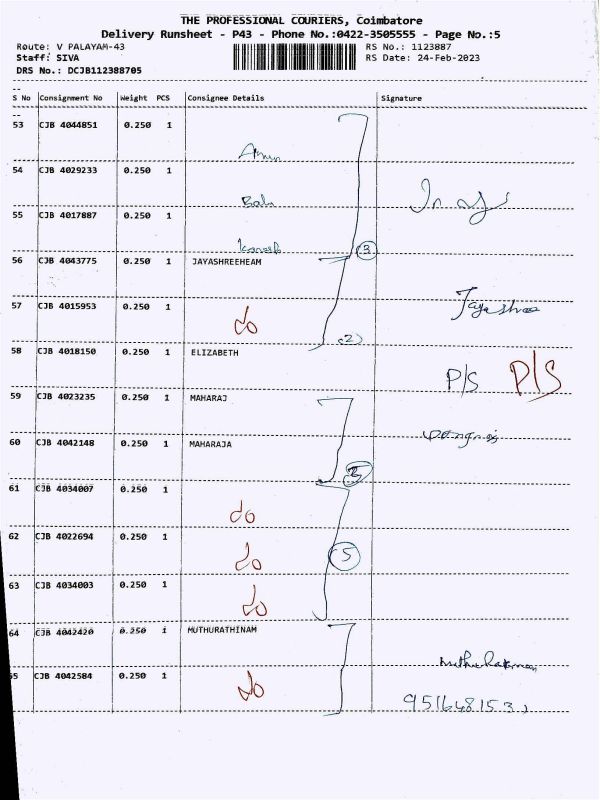 THE PROFESSIONAL COURIERS, Coimbatore
Delivery Runsheet - P43 - Phone No.:0422-3505555 - Page No.:5
Route: V PALAYAM-43 RS No.: 1123887
Staff: SIVA RS Date: 24-Feb-2023
DRS No.: DCJB112388705
S No Consignment No Weight PCS Consignee Details Signature
53 CJB 4044851 0.250 1
54 CJB 4029233 0.250 1
55 CJB 4017887 0.250 1
3
56 CJB 4043775 0.250 1 JAYASHREEHEAM
57 CJB 4015953 0.250 1
do
Jayashree
2
58 CJB 4018150 0.250 1 ELIZABETH
P/S P/S
59 CJB 4023235 0.250 1 MAHARAJ
60 CJB 4042148 0.250 1 MAHARAJA
61 CJB 4034007 0.250 1
do
62 CJB 4022694 0.250 1
do 5
63 CJB 4034003 0.250 1
do
64 CJB 4042420 0.250 1 MUTHURATHINAM
65 CJB 4042584 0.250 1
do